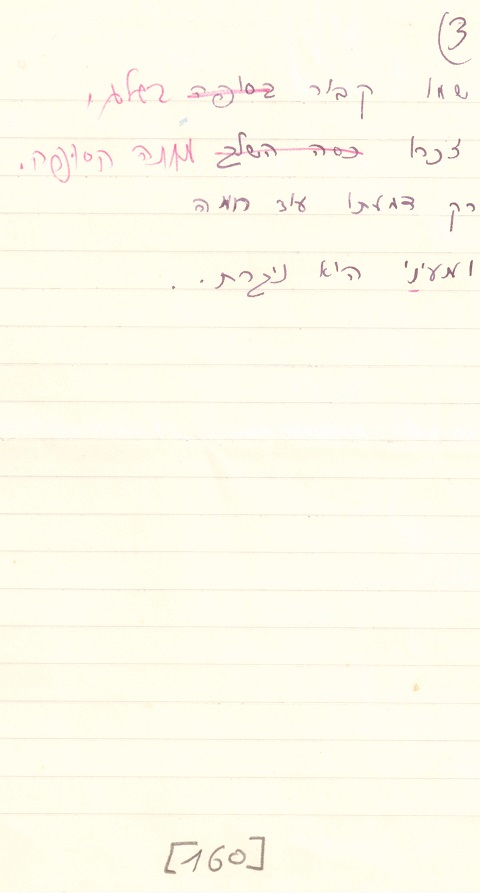 (3
שמו קבור בסופה בשלג,
זכרו כסה השלג מחתה הסופה.
רק דמעתו עוד חמה
ומעיני היא ניגרת..
[160]